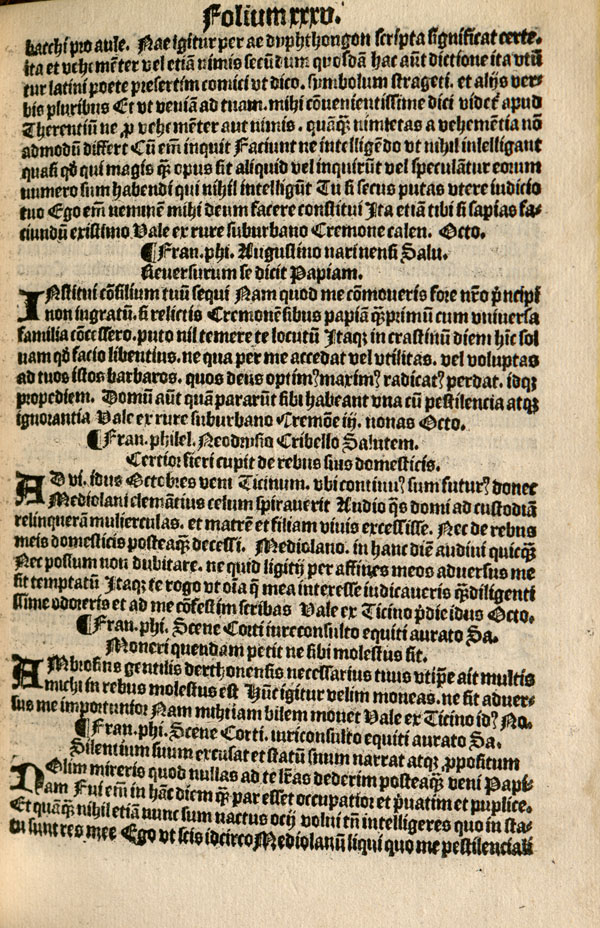 Folium xxxv.
bacchi pro aule. Nae igitur per ae dyphthongon scripta significat certe.
ita et vehemẽter vel etiã nimis secũdum quosdã hac aũt dictione ita vtũ
tur latini poete presertim comici vt dico. symbolum strageti. et alijs ver-
bis pluribus Et vt veniã ad tuam. mihi cõvenientissime dici videt̃ apud
Therentiũ ne ꝓ vehemẽter aut nimis. quãqꝫ nimietas a vehemẽtia nõ
admodũ differt Cũ em̃ inquit Faciunt ne intelligẽdo vt nihil intelligant
quasi qđ qui magis qꝫ̃ opus sit aliquid vel inquirũt vel speculãtur eorum
numero sum habendi qui nihil intelligũt Tu si secus putas vtere iudicio
tuo Ego em̃ neminẽ mihi deum facere constitui Ita etiã tibi si sapias fa-
ciundũ existimo Vale ex rure suburbano Cremone calen. Octo.
¶ Fran. phi. Augustino narinensi Salu.
Reuersurum se dicit Papiam.
INstitui cõsilium tuũ sequi Nam quod me cõmoueris fore nr̃o p̃ncipi
non ingratũ. si relictis Cremonẽsibus papiã qꝫ̃primũ cum vniuersa
familia cõcessero. puto nil temere te locutũ Itaqꝫ in crastinũ diem hĩc sol
uam qđ facio libentius. ne qua per me accedat vel vtilitas. vel voluptas
ad tuos istos barbaros. quos deus optimꝰ maximꝰ radicatꝰ perdat. idqꝫ
propediem. Domũ aũt quã pararũt sibi habeant vna cũ pestilencia atqꝫ
ignorantia Vale ex rure suburbano Cremõe iij. nonas Octo.
¶ Fran. philel. Neodrusio Cribello Salutem.
Certior fieri cupit de rebus suis domesticis.
AD vi. idus Octobres veni Ticinum. vbi continuꝰ sum futurꝰ donec
Mediolani clemãtius celum spirauerit Audio q̃s domi ad custodiã
relinquerã mulierculas. et matrẽ et filiam viuis excessisse. Nec de rebus
meis domesticis posteaqꝫ̃ decessi. Mediolano. in hanc diẽ audini quicqꝫ̃
Nec possum non dubitare. ne quid ligitij per affines meos aduersus me
sit temptatũ Itaqꝫ te rogo vt oĩa q̃ mea interesse iudicaueris qꝫ̃diligenti
ssime odoreris et ad me cõfestim scribas Vale ex Ticino p̃die idus Octo.
¶ Fran. phi. Scene Corti iureconsulto equiti aurato Sa.
Moneri quendam petit ne sibi molestus sit.
AMbrosius gentilis derthonensis necessarius tuus vtip̃e ait multis
michi in rebus molestus est Hũc igitur velim moneas. ne sit aduer-
sus me importunior Nam mihi iam bilem mouet Vale ex Ticino idꝰ No.
¶ Fran. phi. Scene Corti. iuriconsulto equiti aurato Sa.
Silentium suum excusat et statũ suum narrat atqꝫ ꝓpositum
NOlim mireris quod nullas ad te l̃ras dederim posteaqꝫ̃ veni Papi-
am Fui em̃ in hãc diem qꝫ̃ par esset occupatior et p̃uatim et puplice.
Et quãqꝫ̃ nihil etiã nunc sum nactus ocij volui tñ intelligeres quo in sta-
tu sunt res mee Ego vt scis idcirco Mediolanũ liqui quo me pestilenciali